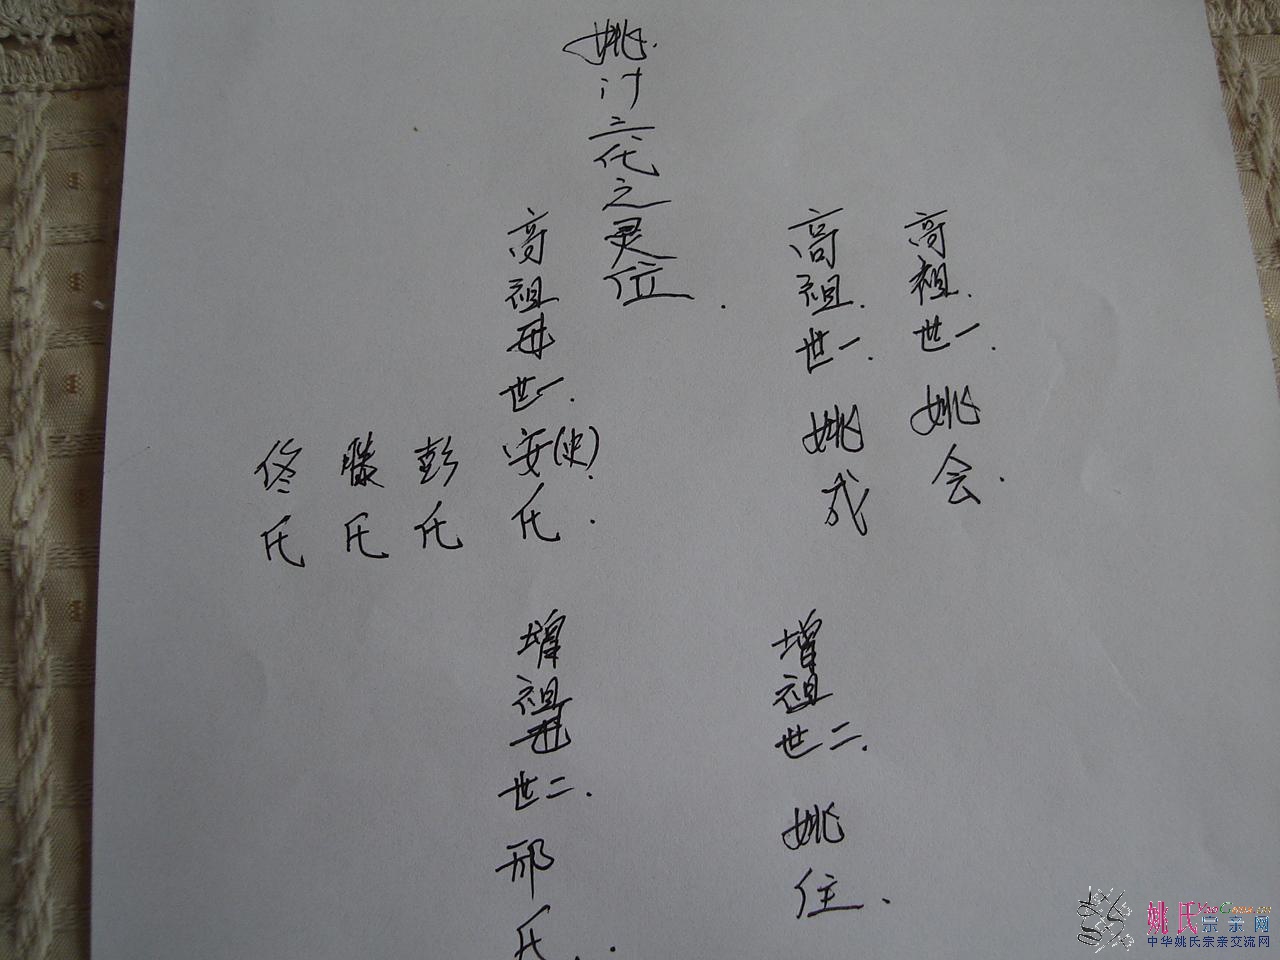 姚门三代之灵位.
高祖世一.姚会.
高祖.世一.姚成
高祖母世一.安(史)氏.
彭氏
滕氏
佟氏
增祖世二.姚住.
增祖母世二.邢氏.
姚氏宗亲网
中华姚氏宗亲交流网